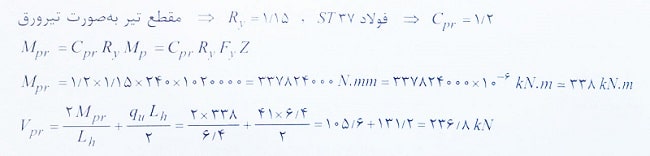 مقطع تیر به‌صورت تیرورق ⇒ R_y = ۱/۱۵ , فولاد ST۳۷ ⇒ C_pr = ۱/۲
M_pr = C_pr R_y M_p = C_pr R_y F_y Z
M_pr = ۱/۲×۱/۱۵×۲۴۰×۱۰۲۰۰۰۰ = ۳۳۷۸۲۴۰۰۰ N.mm = ۳۳۷۸۲۴۰۰۰×۱۰^-۶ kN.m = ۳۳۸ kN.m
V_pr = ۲M_pr / L_h + q_u L_h / ۲ = ۲×۳۳۸ / ۶/۴ + ۴۱×۶/۴ / ۲ = ۱۰۵/۶+۱۳۱/۲ = ۲۳۶/۸ kN